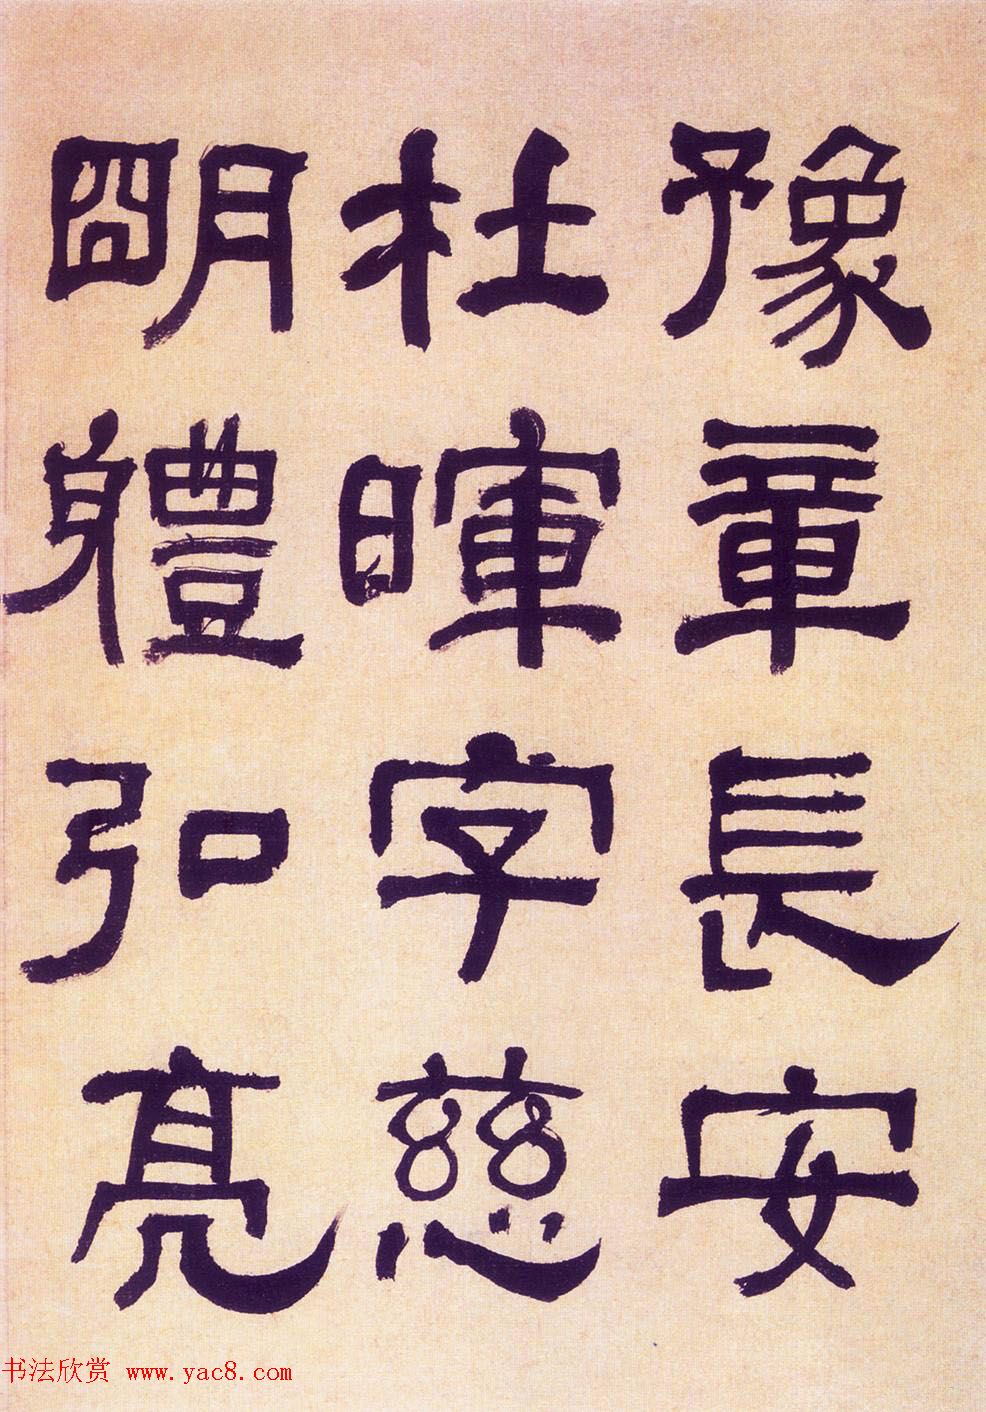 豫章長安
杜暉字慈
明軆弘亮
书法欣赏 www.yac8.com